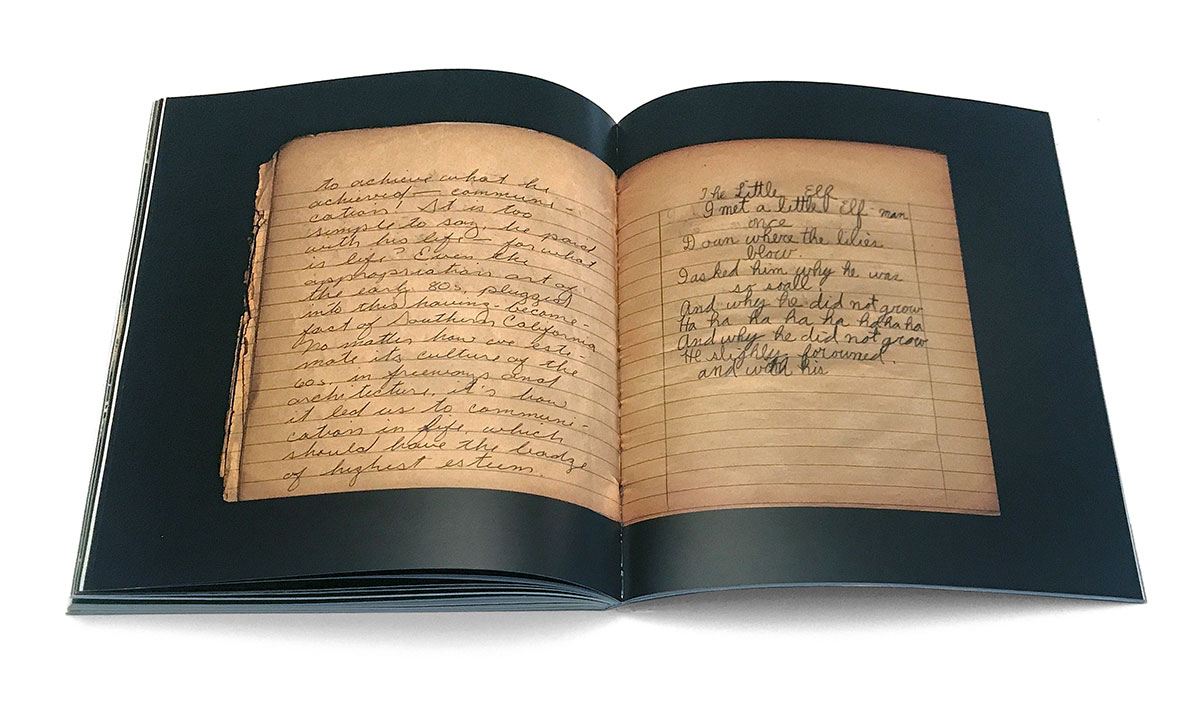 to achieve what he
achieved — communi-
cation! It is too
simple to say, he paid
with his life — for what
is life? Even the
appropriation art of
the early 80s, plugged
into this having-become-
fast of Southern California
No matter how we este-
mate its culture of the
60s, in freeways and
architecture, it's how
it led us to communi-
cation in life which
should have the badge
of highest esteem
The Little Elf
I met a little Elf-man
once
Down where the lilies
blow.
I asked him why he was
so small.
And why he did not grow
Ha ha ha ha ha ha ha ha
And why he did not grow
He slighly forowned.
and with his